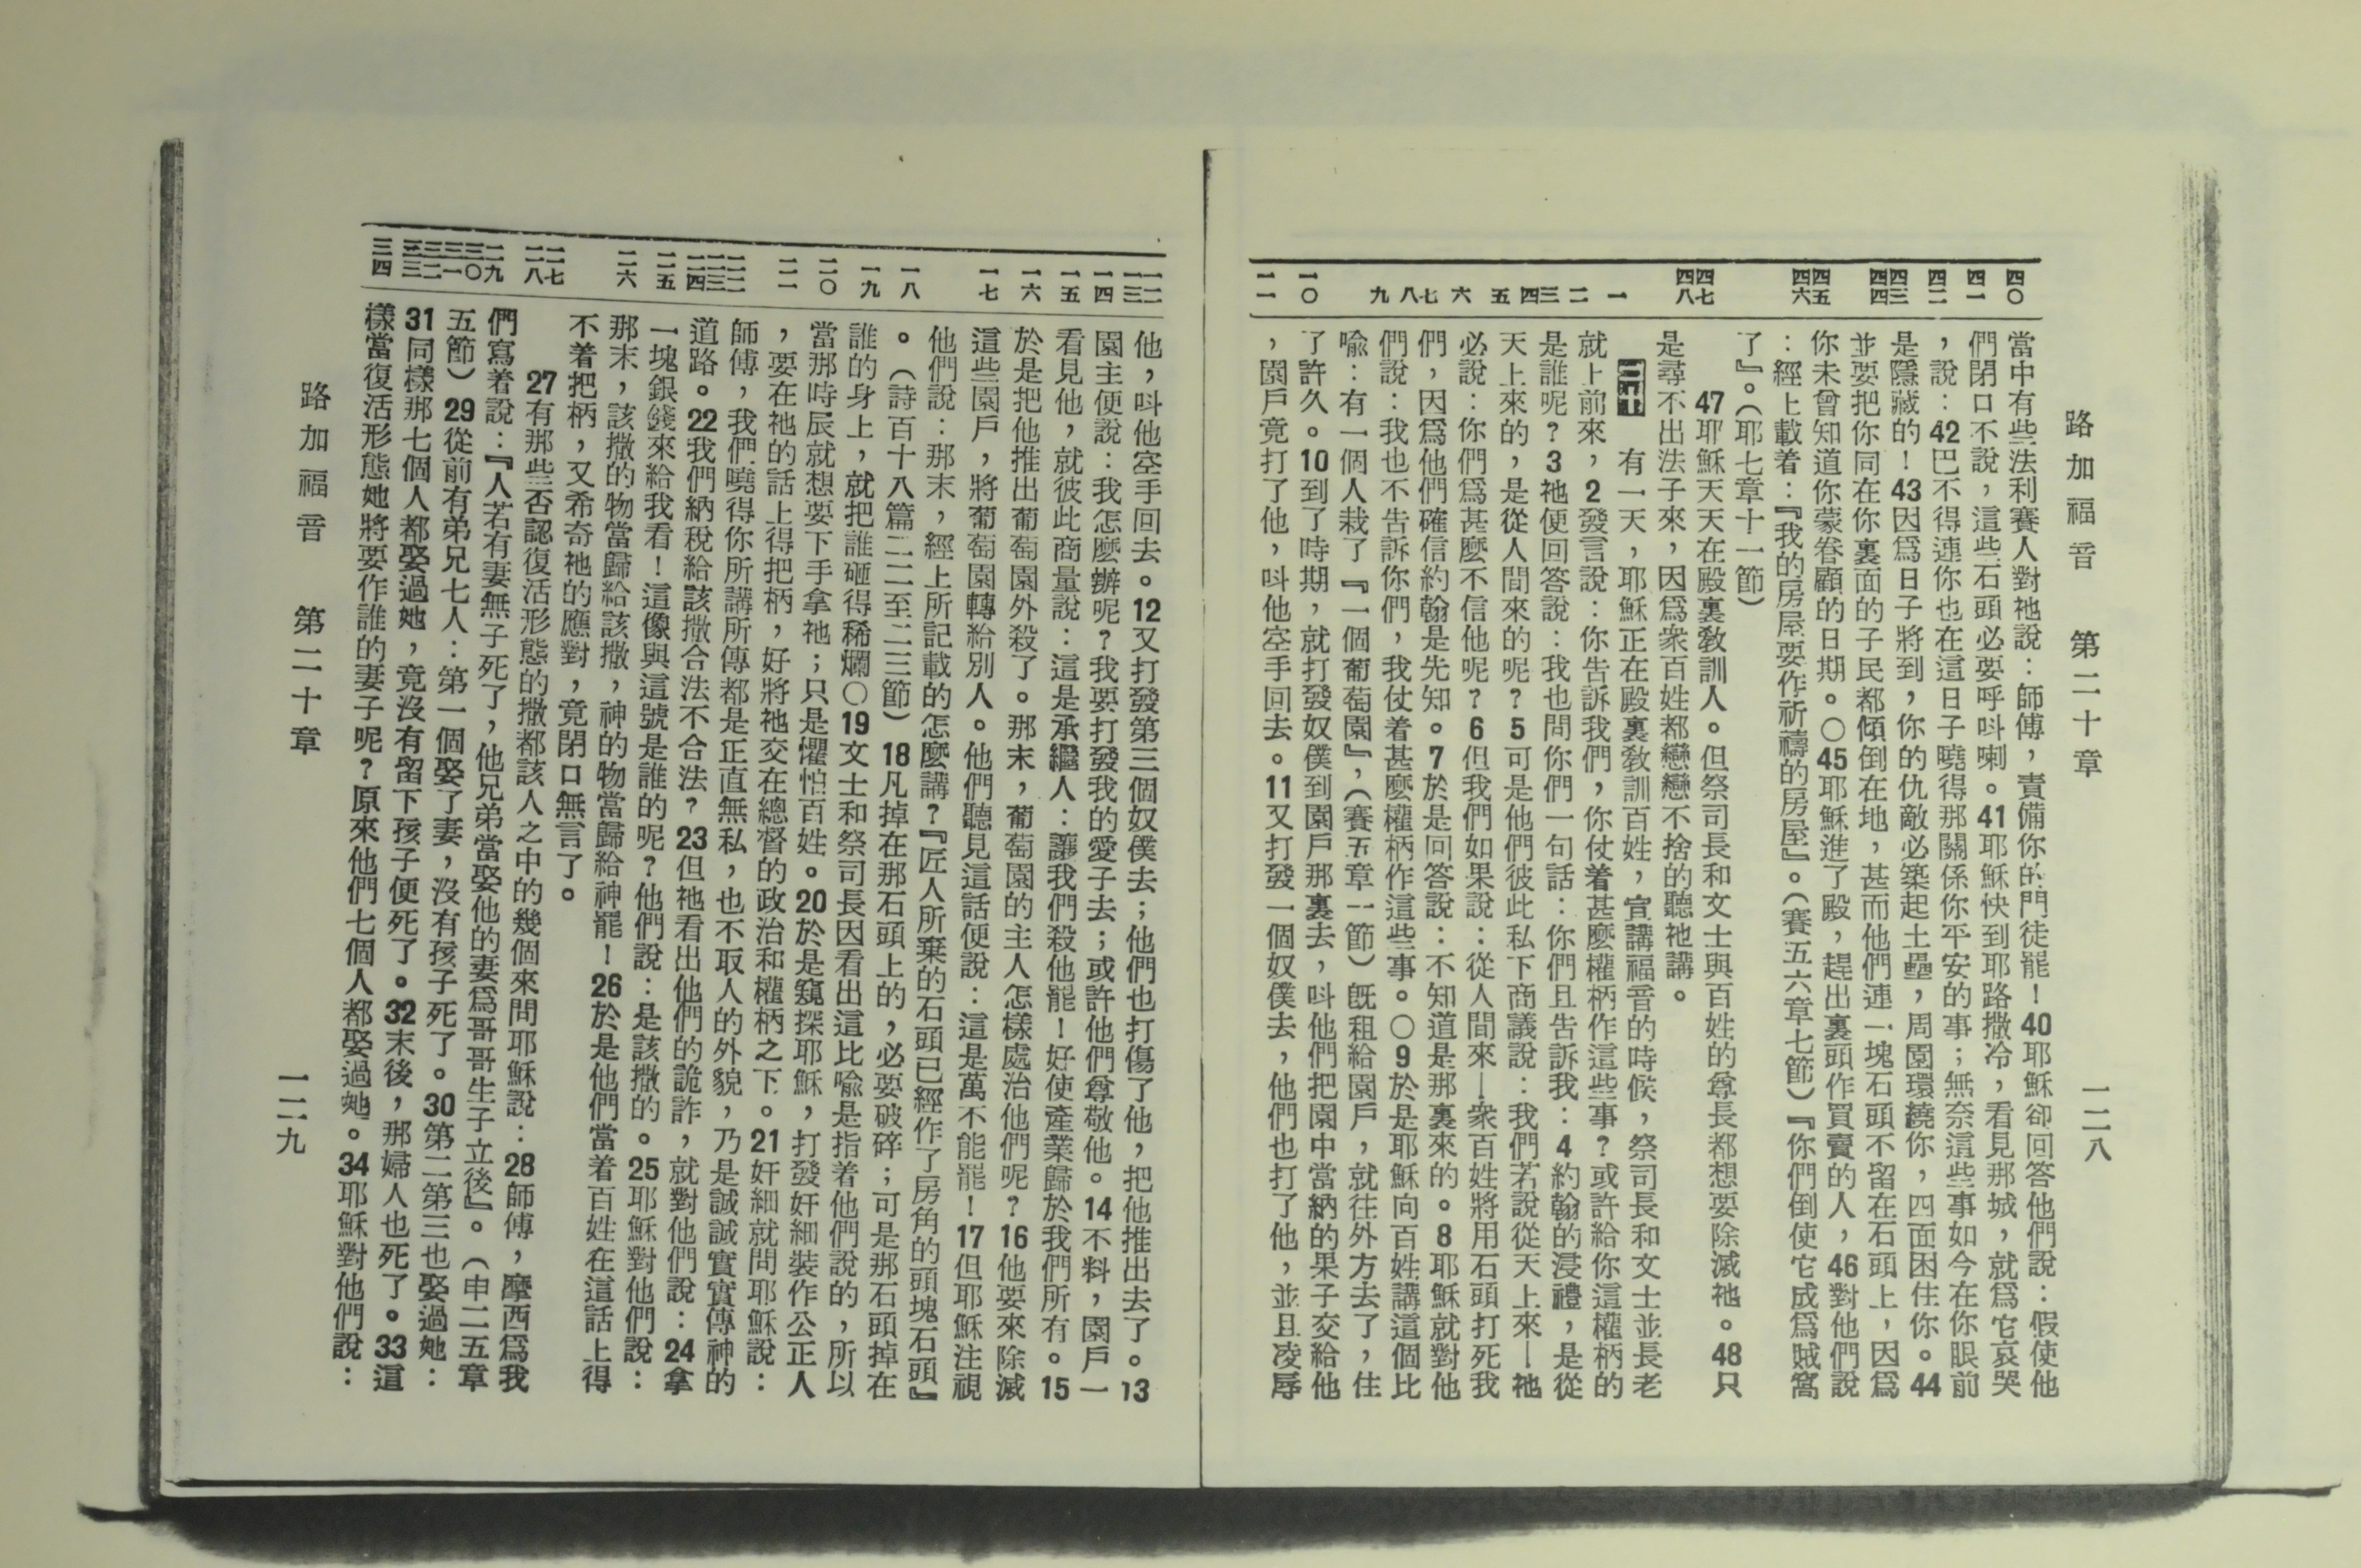 路加福音　第二十章　一二八
四〇　四一　四二　四三　四四　四五　四六　四七　四八　一　二　三　四　五　六　七　八　九　一〇　一一
當中有些法利賽人對祂說：師傅，責備你的門徒罷！40耶穌卻回答他們說：假使他
們閉口不說，這些石頭必要呼呌喇。41耶穌快到耶路撒冷，看見那城，就爲它哀哭
，說：42巴不得連你也在這日子曉得那關係你平安的事；無奈這些事如今在你眼前
是隱藏的！43因爲日子將到，你的仇敵必築起土壘，周圍環繞你，四面困住你。44
並要把你同在你裏面的子民都傾倒在地，甚而他們連一塊石頭不留在石頭上，因爲
你未曾知道你蒙眷顧的日期。〇45耶穌進了殿，趕出裏頭作買賣的人，46對他們說
：經上載着：『我的房屋要作祈禱的房屋』。（賽五六章七節）『你們倒使它成爲賊窩
了』。（耶七章十一節）
47耶穌天天在殿裏敎訓人。但祭司長和文士與百姓的尊長都想要除滅祂。48只
是尋不出法子來，因爲衆百姓都戀戀不捨的聽祂講。
二十　有一天，耶穌正在殿裏敎訓百姓，宣講福音的時候，祭司長和文士並長老
就上前來，2發言說：你告訴我們，你仗着甚麼權柄作這些事？或許給你這權柄的
是誰呢？3祂便回答說：我也問你們一句話：你們且告訴我：4約翰的浸禮，是從
天上來的，是從人間來的呢？5可是他們彼此私下商議說：我們若說從天上來—祂
必說：你們爲甚麼不信他呢？6但我們如果說：從人間來—衆百姓將用石頭打死我
們，因爲他們確信約翰是先知。7於是回答說：不知道是那裏來的。8耶穌就對他
們說：我也不告訴你們，我仗着甚麼權柄作這些事。〇9於是耶穌向百姓講這個比
喻：有一個人栽了『一個葡萄園』，（賽五章一節）旣租給園戶，就往外方去了，住
了許久。10到了時期，就打發奴僕到園戶那裏去，呌他們把園中當納的果子交給他
，園戶竟打了他，呌他空手回去。11又打發一個奴僕去，他們也打了他，並且凌辱
一二　一三　一四　一五　一六　一七　一八　一九　二〇　二一　二二　二三　二四　二五　二六　二七　二八　二九　三〇　三一　三二　三三　三四
他，呌他空手回去。12又打發第三個奴僕去；他們也打傷了他，把他推出去了。13
園主便說：我怎麼辦呢？我要打發我的愛子去；或許他們尊敬他。14不料，園戶一
看見他，就彼此商量說：這是承繼人：讓我們殺他罷！好使產業歸於我們所有。15
於是把他推出葡萄園外殺了。那末，葡萄園的主人怎樣處治他們呢？16他要來除滅
這些園戶，將葡萄園轉給別人。他們聽見這話便說：這是萬不能罷！17但耶穌注視
他們說：那末，經上所記載的怎麼講？『匠人所棄的石頭已經作了房角的頭塊石頭』
。（詩百十八篇二二至二三節）18凡掉在那石頭上的，必要破碎；可是那石頭掉在
誰的身上，就把誰砸得稀爛〇19文士和祭司長因看出這比喻是指着他們說的，所以
當那時辰就想要下手拿祂；只是懼怕百姓。20於是窺探耶穌，打發奸細裝作公正人
，要在祂的話上得把柄，好將祂交在總督的政治和權柄之下。21奸細就問耶穌說：
師傅，我們曉得你所講所傳都是正直無私，也不取人的外貌，乃是誠誠實實傳神的
道路。22我們納稅給該撒合法不合法？23但祂看出他們的詭詐，就對他們說：24拿
一塊銀錢來給我看！這像與這號是誰的呢？他們說：是該撒的。25耶穌對他們說：
那末，該撒的物當歸給該撒，神的物當歸給神罷！26於是他們當着百姓在這話上得
不着把柄，又希奇祂的應對，竟閉口無言了。
27有那些否認復活形態的撒都該人之中的幾個來問耶穌說：28師傅，摩西爲我
們寫着說：『人若有妻無子死了，他兄弟當娶他的妻爲哥哥生子立後』。（申二五章
五節）29從前有弟兄七人：第一個娶了妻，沒有孩子死了。30第二第三也娶過她：
31同樣那七個人都娶過她，竟沒有留下孩子便死了。32末後，那婦人也死了。33這
樣當復活形態她將要作誰的妻子呢？原來他們七個人都娶過她。34耶穌對他們說：
路加福音　第二十章　一二九